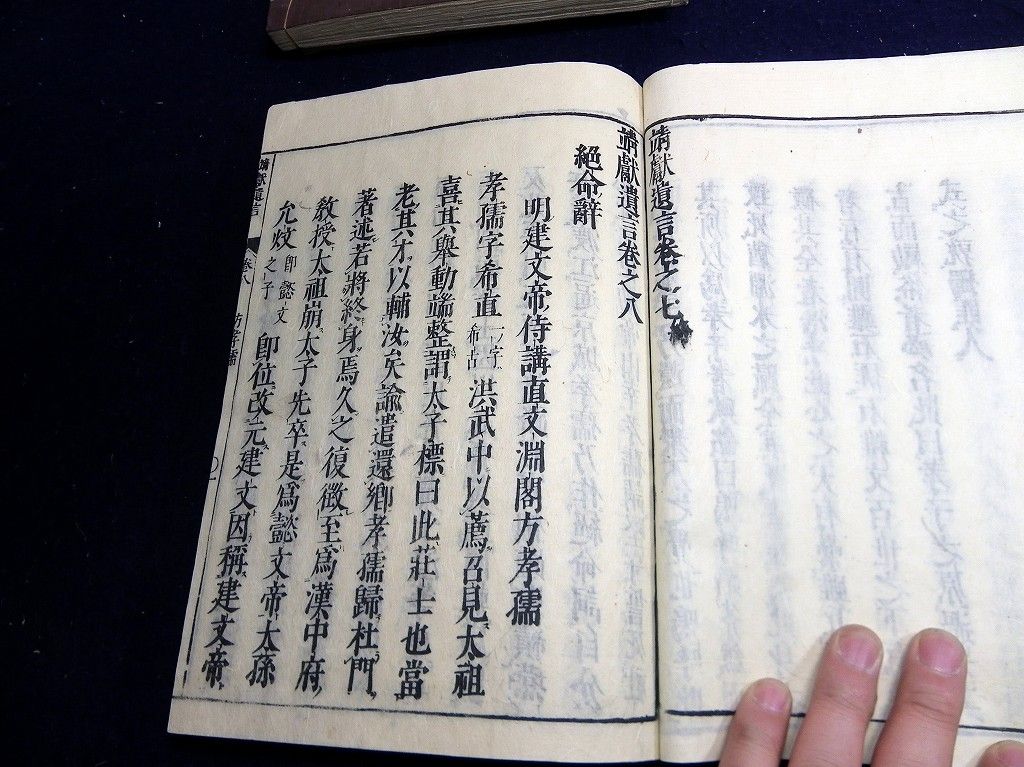 靖獻遺言卷之七終
靖獻遺言卷之八
絕命辭
明建文帝侍講直文淵閣方孝孺
孝孺字希直一字希古洪武中以薦召見太祖
喜其舉動端整謂太子標曰此莊士也當
老其才以輔汝矣諭遣還鄉孝孺歸杜門
著述若將終身焉久之復徵至爲漢中府
敎授太祖崩太子先卒是爲懿文帝太孫
允炆卽懿文之子卽位改元建文因稱建文帝
靖獻遺言
卷八